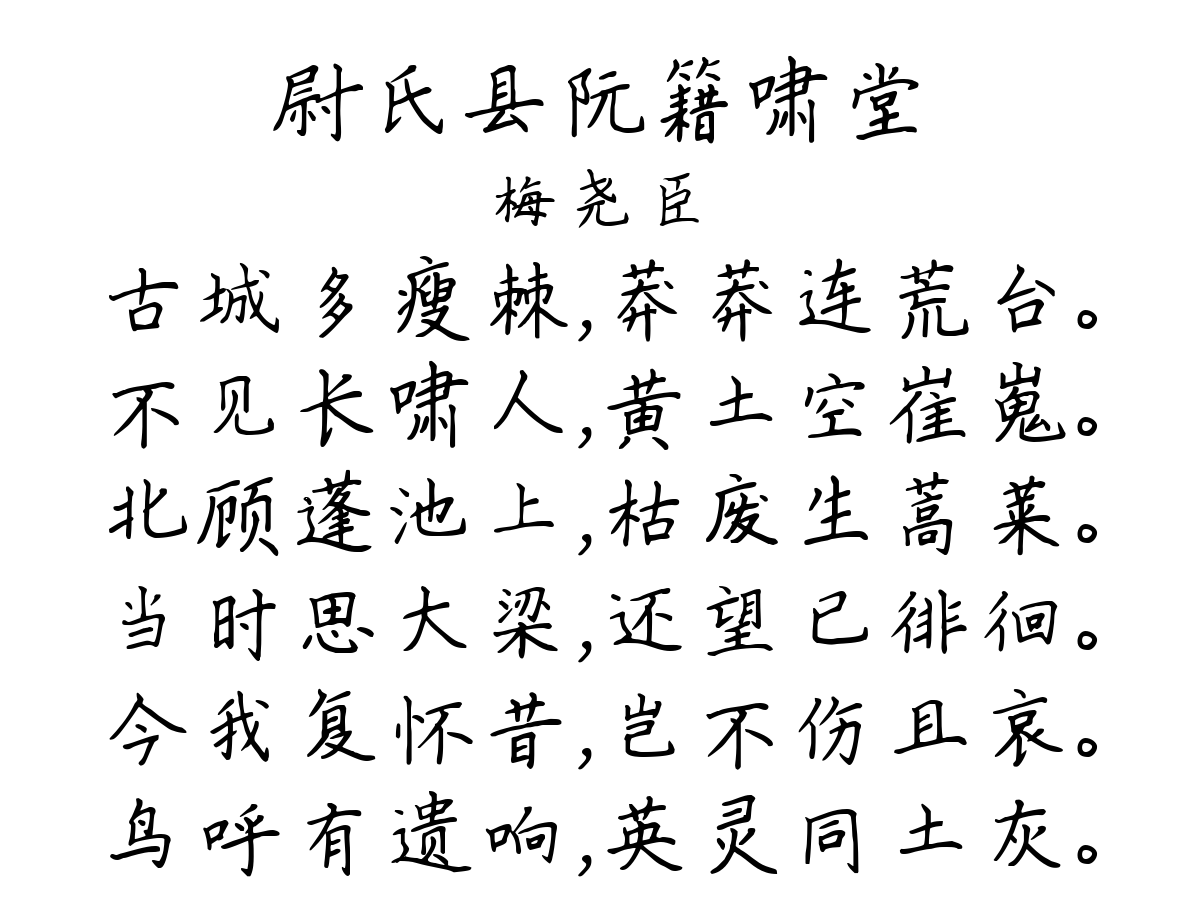 尉氏县阮籍啸堂
梅尧臣
古城多瘦棘,莽莽连荒台。
不见长啸人,黄土空崔嵬。
北顾蓬池上,枯废生蒿莱。
当时思大梁,还望已徘徊。
今我复怀昔,岂不伤且哀。
鸟呼有遗响,英灵同土灰。